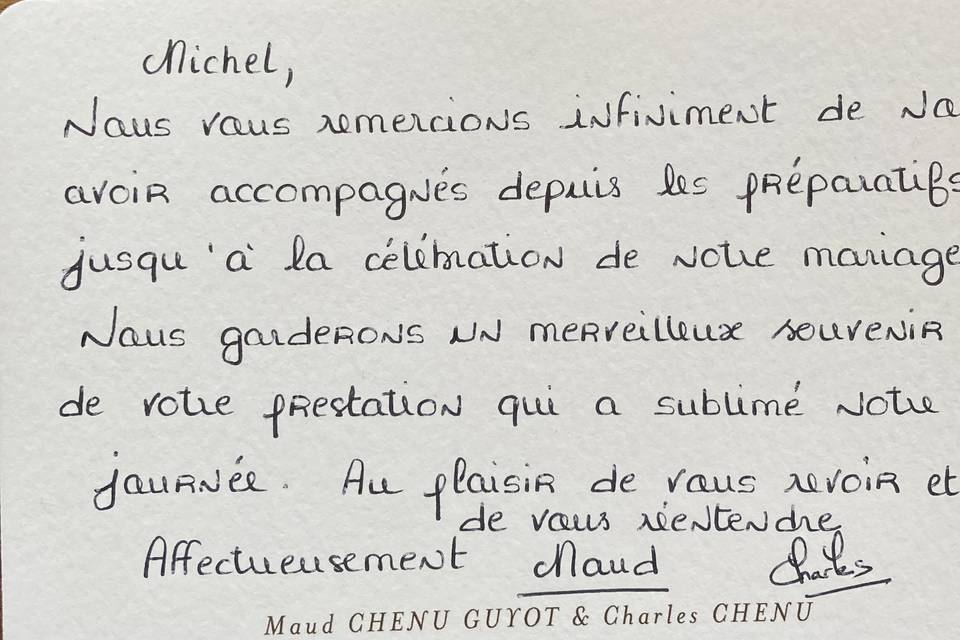 Michel,
Nous vous remercions infiniment de no
avoir accompagnés depuis les préparatifs
jusqu'à la célébration de notre mariage
Nous garderons un merveilleux souvenir
de votre prestation qui a sublimé notre
journée. Au plaisir de vous revoir et
de vous réentendre
Affectueusement Maud Charles
Maud CHENU GUYOT & Charles CHENU